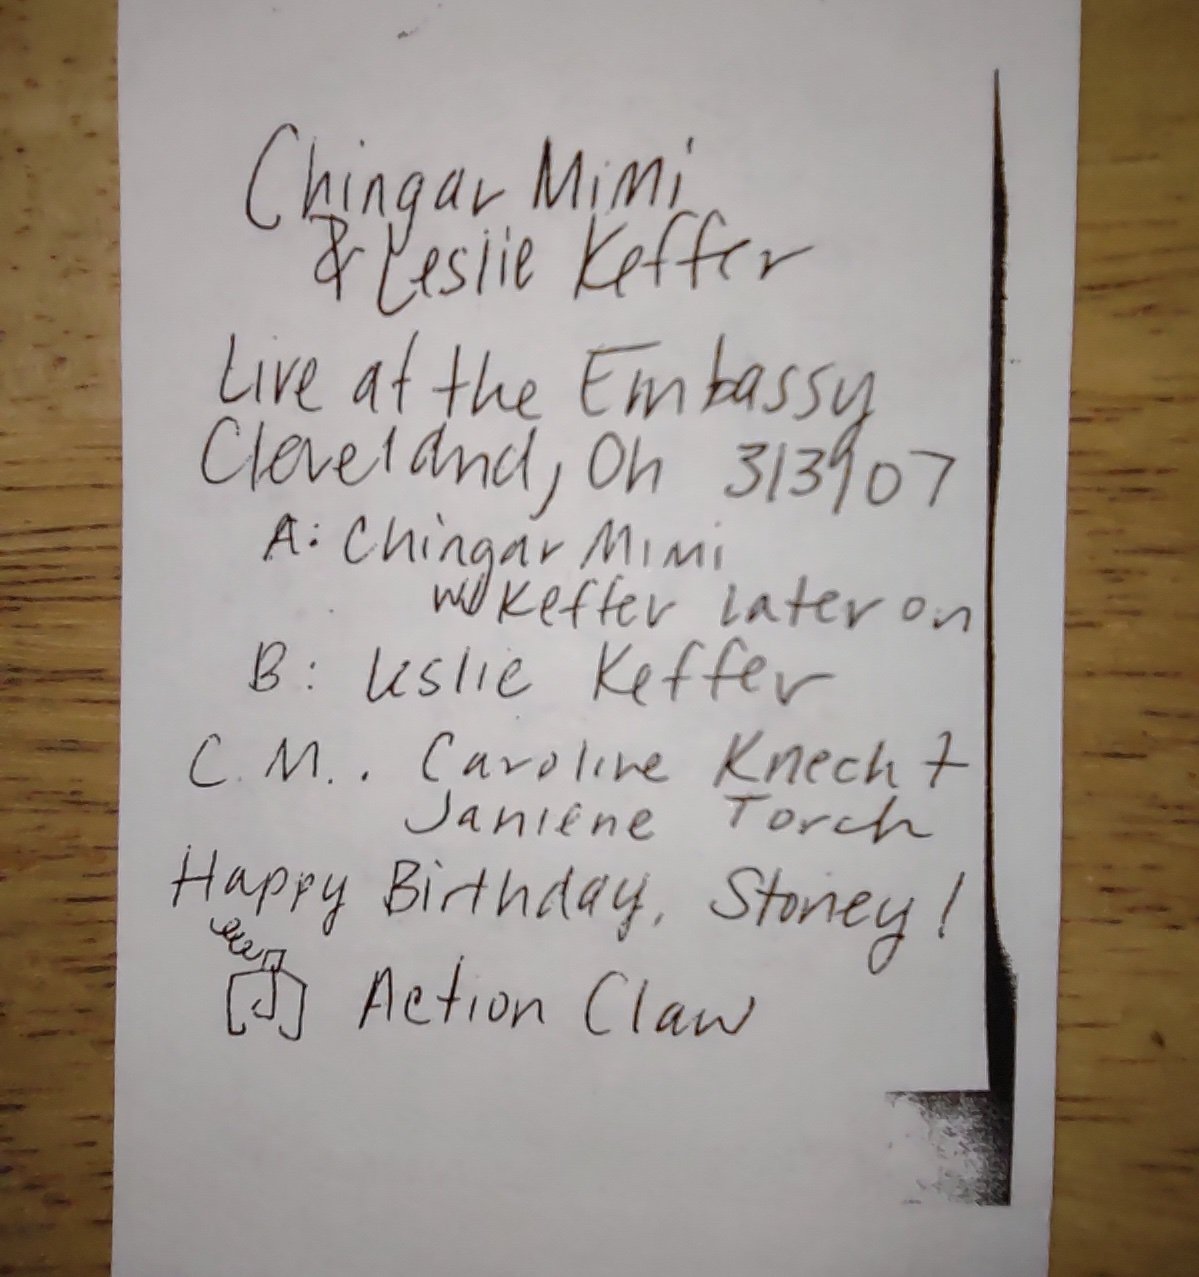 Chingar Mimi
& Leslie Keffer
Live at the Embassy
Cleveland, Oh 3/3/07
A: Chingar Mimi
w/ Keffer later on
B: Leslie Keffer
C.M.. Caroline Knecht
Janiene Torch
Happy Birthday, Stoney!
Action Claw